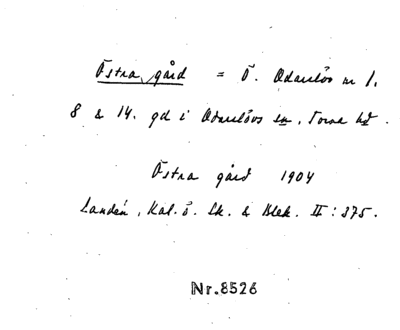 Östra gård = Ö. Odarslöv nr 1.
8 & 14. gd i Odarslövs sn, Torna hd.
Östra gård 1904
Landén, Kal. ö. Sk. & Blek. II : 375.
Nr.8526